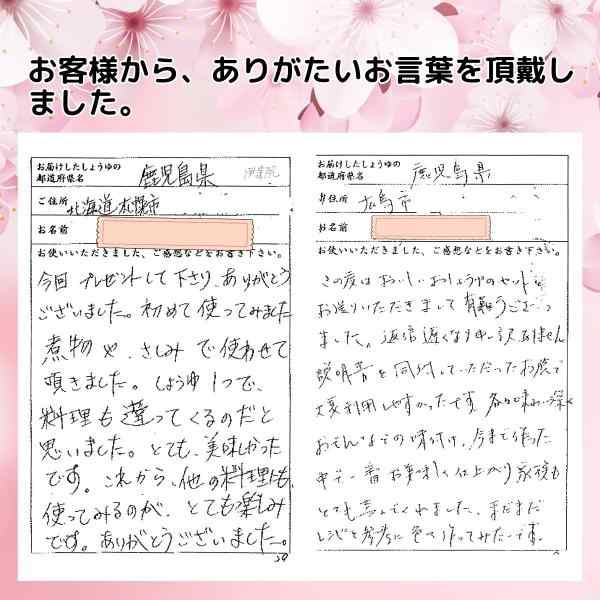 お客様から、ありがたいお言葉を頂戴し
ました。
お届けしたしょうゆの
都道府県名
鹿児島県
ご住所
北海道札幌市
お名前
お使いいただきました、ご感想などをお書き下さい。
今回 プレゼントして下さり、ありがとう
ございました。初めて使ってみました
煮物や、さしみで使わせて
頂きました。しょうゆ1つで、
料理も違ってくるのだと
思いました。とても、美味しかった
です。これから、他の料理にも、
使ってみるのが、とても楽しみ
です。ありがとうございました。
お届けしたしょうゆの
都道府県名
鹿児島県
ご住所
広島市
お名前
お使いいただきました、ご感想などをお書き下さい。
この度はおいしいおしょうゆのセットを
お送りいただきまして有難うござい
ました。返信遅くなり申し訳ありません
説明書を同封していただいたお陰で
大変利用しやすかったです。各々味わい深く
おでんの味付け、今まで作った
中で一番お美味しく仕上がり家族も
とても喜んでくれました、まだまだ
レシピを参考に色々作ってみたいです。